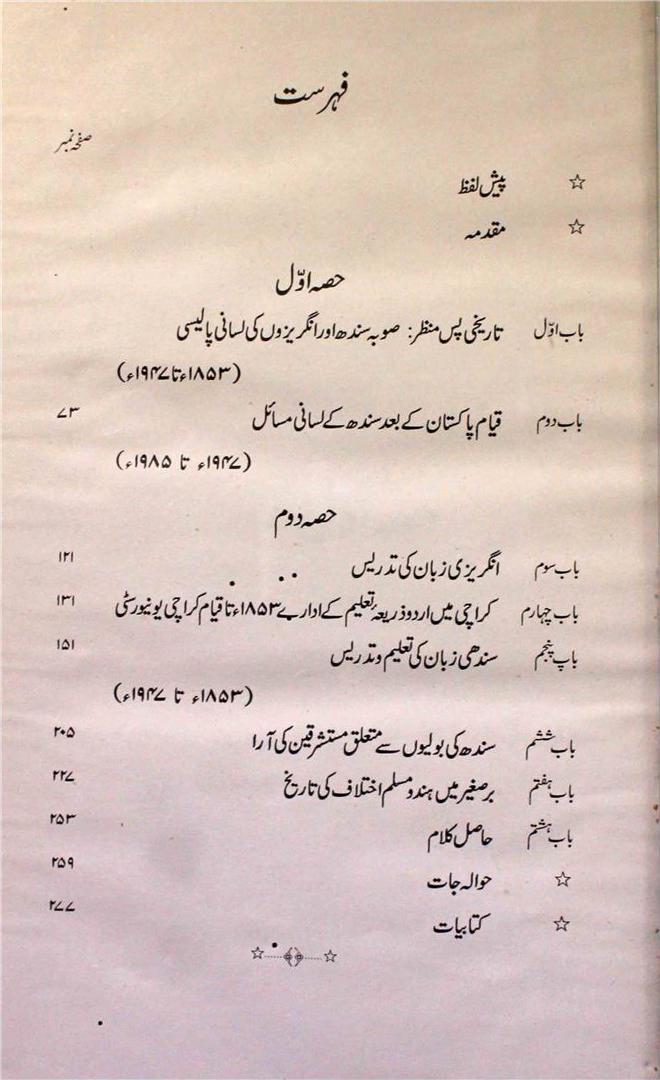 فہرست
صفحہ نمبر
☆ پیش لفظ
☆ مقدمہ
حصہ اوّل
باب اوّل تاریخی پس منظر: صوبہ سندھ اور انگریزوں کی لسانی پالیسی
(۱۸۵۳ء تا ۱۹۴۷ء)
باب دوم قیام پاکستان کے بعد سندھ کے لسانی مسائل ۷۳
(۱۹۴۷ء تا ۱۹۸۵ء)
حصہ دوم
باب سوم انگریزی زبان کی تدریس ۱۲۱
باب چہارم کراچی میں اردو ذریعۂ تعلیم کے ادارے ۱۸۵۳ء تا قیام کراچی یونیورسٹی ۱۳۱
باب پنجم سندھی زبان کی تعلیم و تدریس ۱۵۱
(۱۸۵۳ء تا ۱۹۴۷ء)
باب ششم سندھ کی بولیوں سے متعلق مستشرقین کی آرا ۲۰۵
باب ہفتم برصغیر میں ہندو مسلم اختلاف کی تاریخ ۲۲۷
باب ہشتم حاصل کلام ۲۵۳
☆ حوالہ جات ۲۵۹
☆ کتابیات ۲۷۷